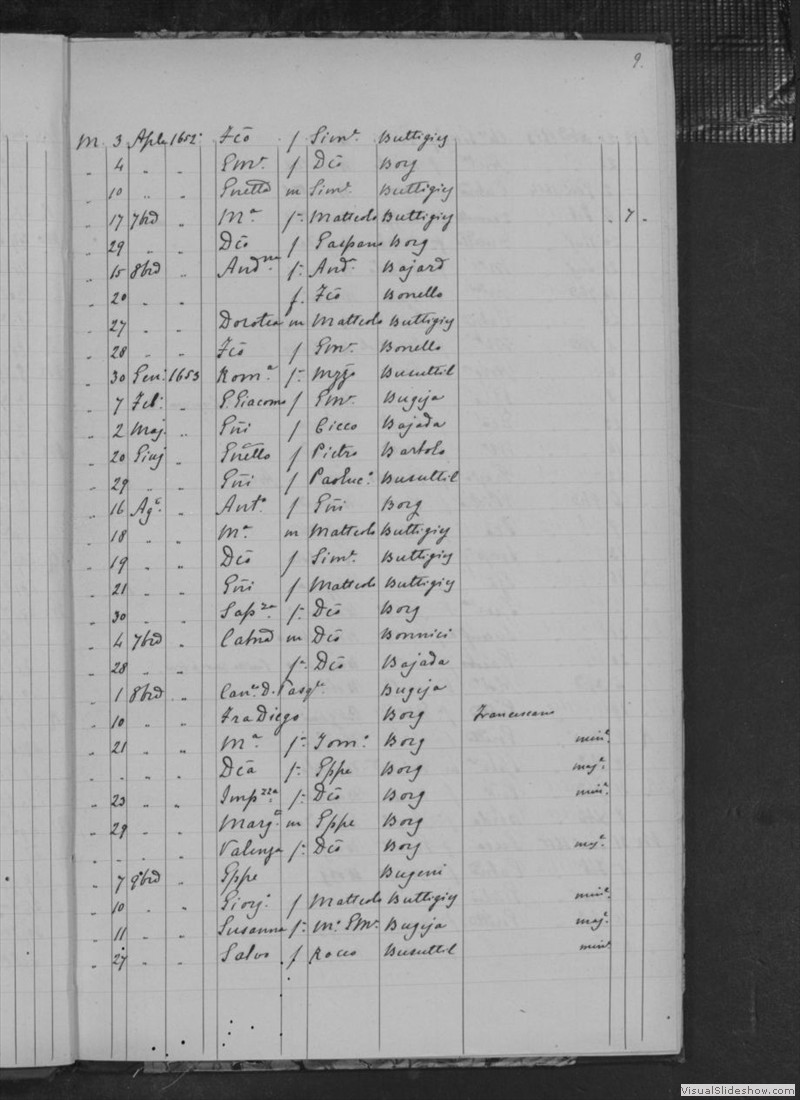 9.
M. 3 Aple 1652. Fcō f Simē Buttigieg
„ 4 „ „ Gmē f Dcō Borg
„ 10 „ „ Gnetta m Simē Buttigieg
„ 17 7bre „ Mª f- Matteolo Buttigieg „ 7 „
„ 29 „ Dcō f Gaspano Borg
„ 15 8bre „ f- Andª Bajard
„ 20 „ „ f. Fcō Bonello
„ 27 „ „ Dorotea m Matteolo Buttigieg
„ 28 „ „ Fcō f Gmē Bonello
„ 30 Gen. 1653 Romª f- Busuttil
„ 7 Feb. „ G. Giacomo f Gmē Bugeja
„ 2 Maj. „ Gñi f Cicco Bajada
„ 20 Giuj „ Gnetto f Pietro Bartolo
„ 29 „ „ Gñi f Paoluc° Busuttil
„ 16 Ag° „ Ant° f Gñi Borg
„ 18 „ „ Mª m Matteolo Buttigieg
„ 19 „ „ Dcō f Simē Buttigieg
„ 21 „ „ Gñi f Matteolo Buttigieg
„ 30 „ „ f- Dcō Borg
„ 4 7bre „ Catnā m Dcō Bonnici
„ 28 „ „ f- Dcō Bajada
„ 1 8bre „ Can° D. Pasqe Bugeja
„ 10 „ „ Fra Diego Borg Francescano
„ 21 „ „ Mª f- Tomº Borg minª
„ „ „ Dcā f- Gppe Borg majª
„ 23 „ „ f- Dcō Borg minª
„ 29 „ „ Margª m Gppe Borg
„ „ „ Valenza f- Dcō Borg majª
„ 7 9bre „ Gppe Bugeni
„ 10 „ „ Giorg° f Matteolo Buttigieg minª
„ 11 „ „ Susanna f- M° Gmē Bugeja majª
„ 27 „ „ Salvo f Rocco Busuttil minª
VisualSlideshow.com